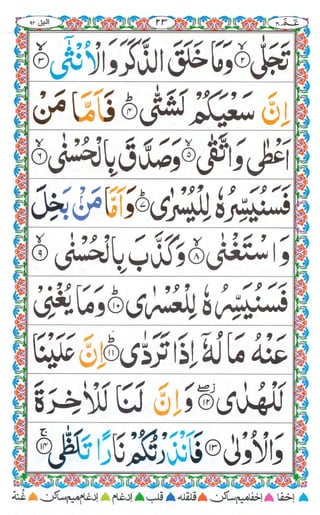 الیل ۹۲ ۲۳ عَمّ ۳۰
تَجَلّٰى ۙ﴿۲﴾ وَمَا خَلَقَ الذَّكَرَ وَالْاُنْثٰٓى ۙ﴿۳﴾
اِنَّ سَعْيَكُمْ لَشَتّٰى ؕ﴿۴﴾ فَاَمَّا مَنْ
اَعْطٰى وَاتَّقٰى ۙ﴿۵﴾ وَصَدَّقَ بِالْحُسْنٰى ۙ﴿۶﴾
فَسَنُيَسِّرُهٗ لِلْيُسْرٰى ؕ﴿۷﴾ وَاَمَّا مَنْۢ بَخِلَ
وَاسْتَغْنٰى ۙ﴿۸﴾ وَكَذَّبَ بِالْحُسْنٰى ۙ﴿۹﴾
فَسَنُيَسِّرُهٗ لِلْعُسْرٰى ؕ﴿۱۰﴾ وَمَا يُغْنِىْ
عَنْهُ مَالُهٗۤ اِذَا تَرَدّٰى ؕ﴿۱۱﴾ اِنَّ عَلَيْنَا
لَلْهُدٰى ۖ﴿۱۲﴾ وَاِنَّ لَنَا لَلْاٰخِرَةَ
وَالْاُوْلٰى ﴿۱۳﴾ فَاَنْذَرْتُكُمْ نَارًا تَلَظّٰى ۚ﴿۱۴﴾
اخفا اخفامیم ساکن قلقله قلب ادغام ادغام میم ساکن غنّه